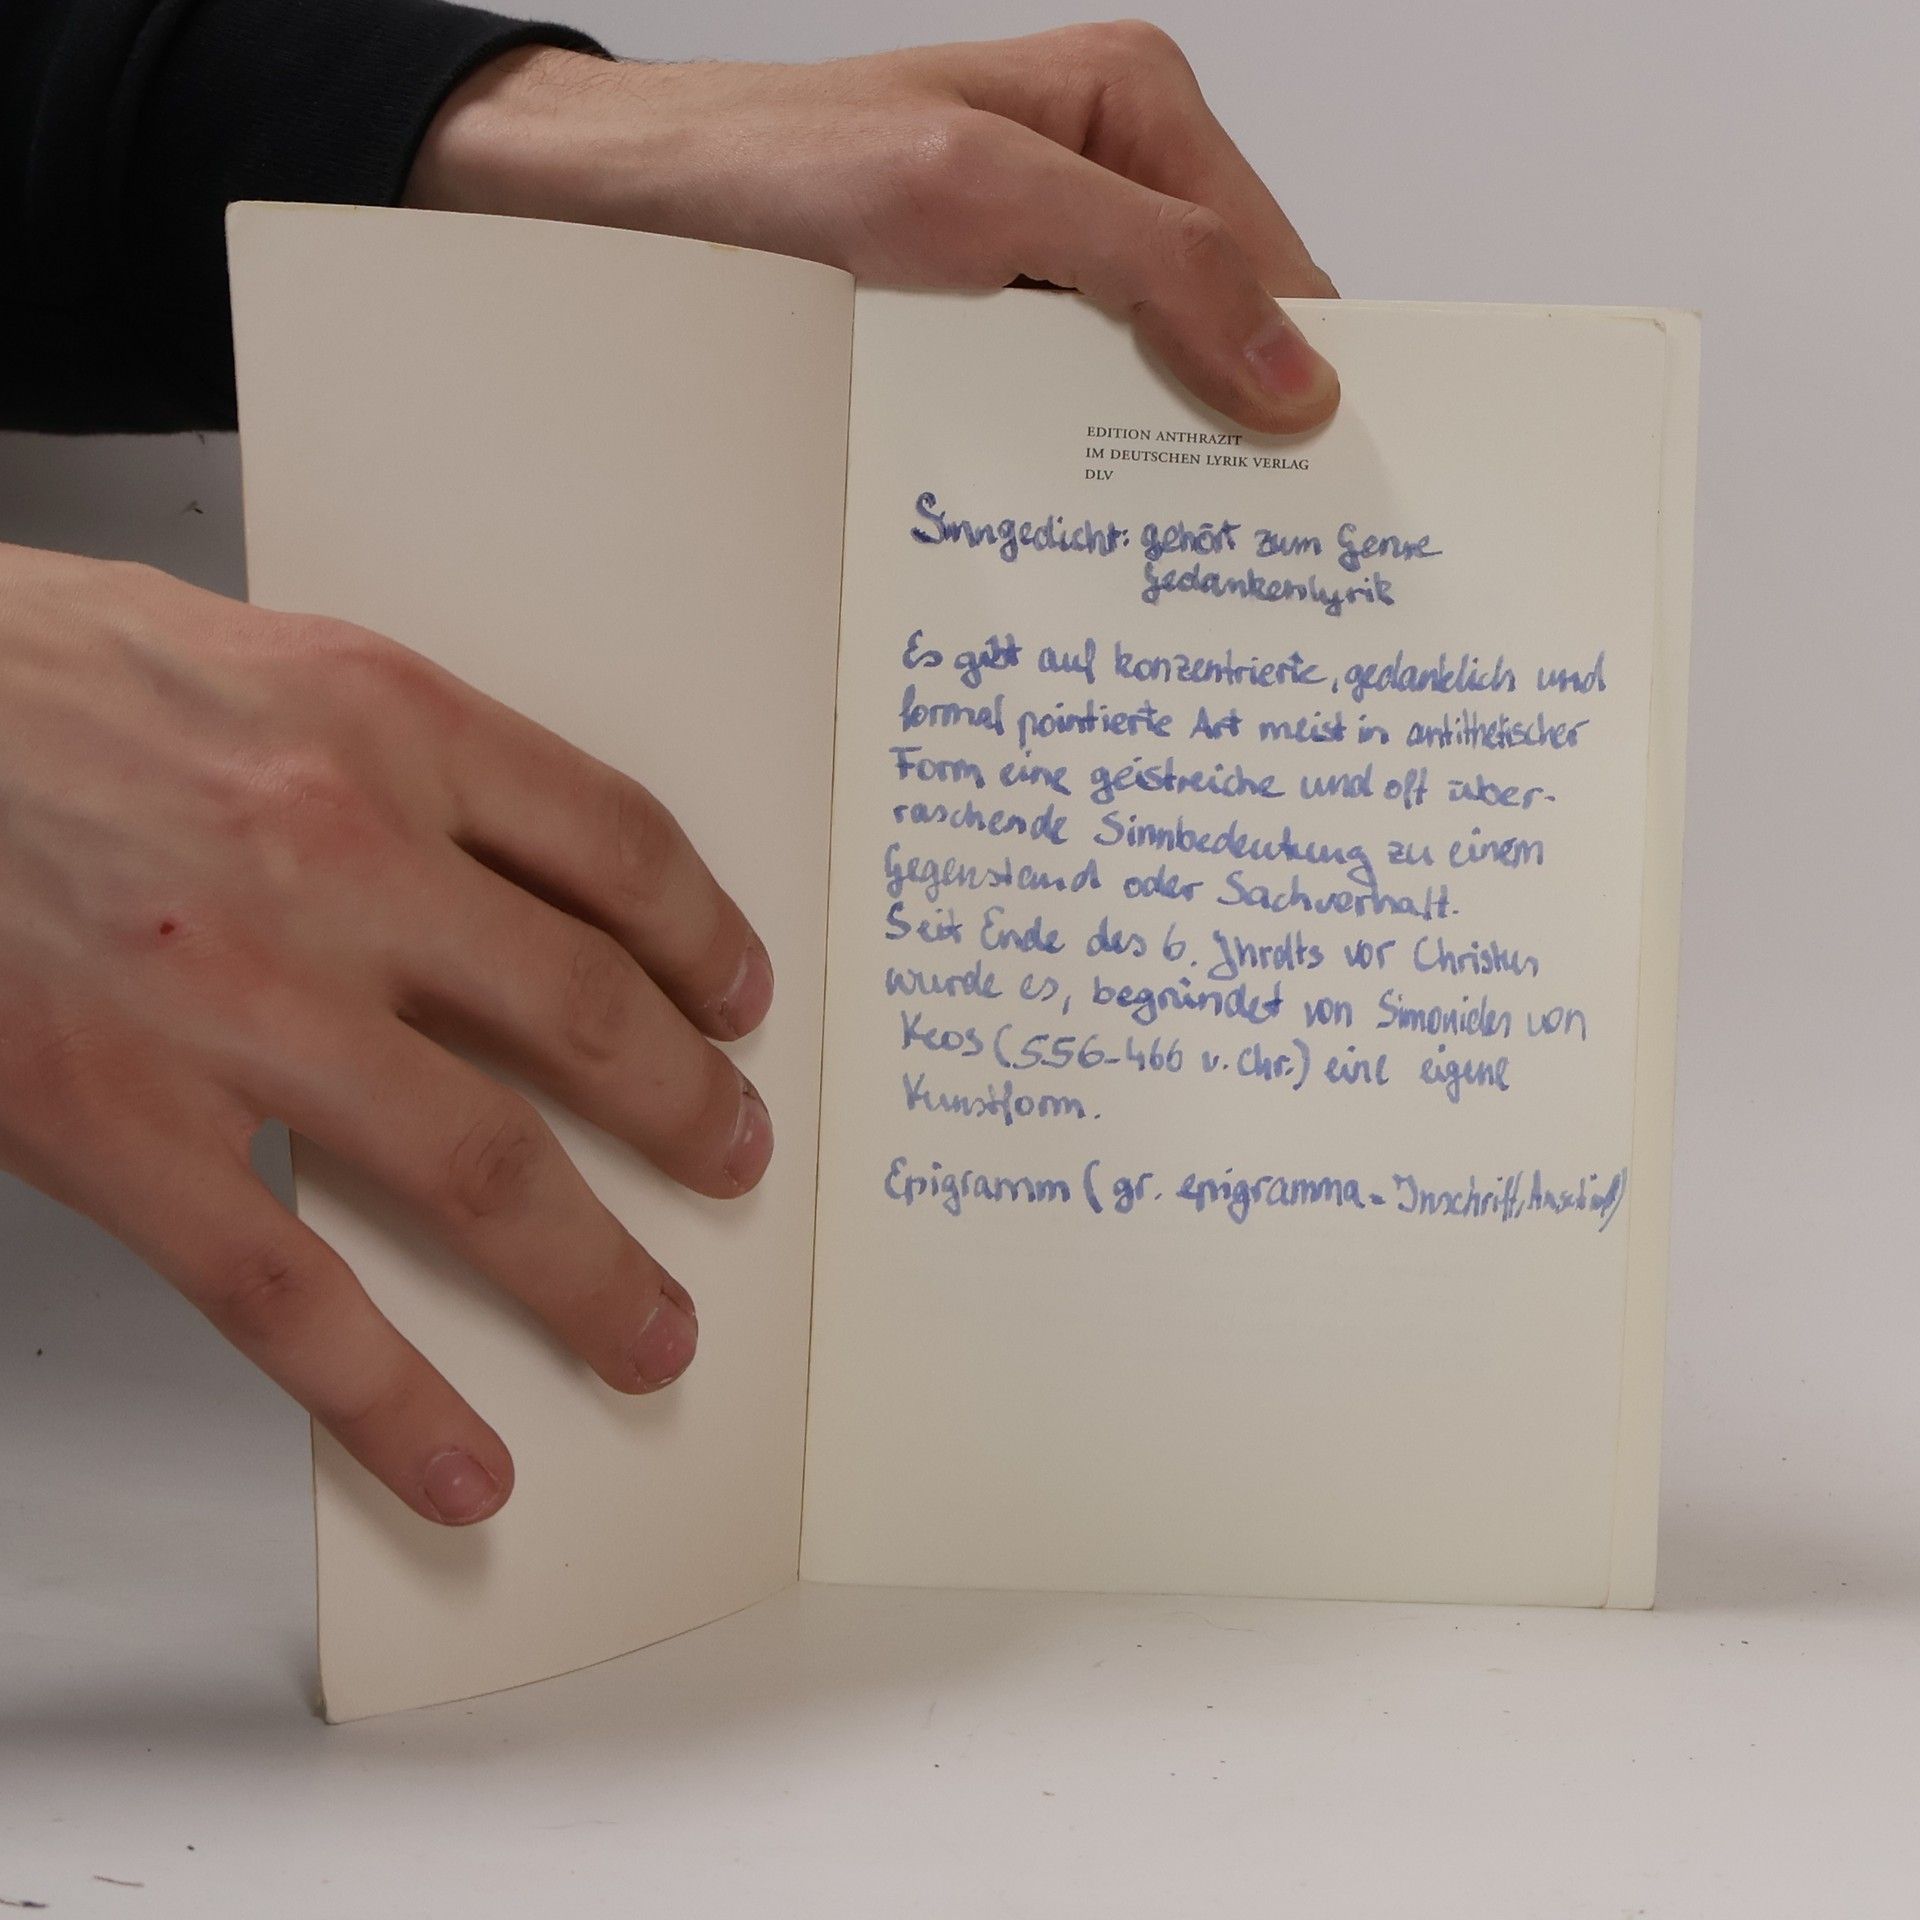 EDITION ANTHRAZIT
IM DEUTSCHEN LYRIK VERLAG
DLV
Sinngedicht: gehört zum Genre
Gedankenlyrik
Es gibt auf konzentrierte, gedanklich und
formal pointierte Art meist in antithetischer
Form eine geistreiche und oft über-
raschende Sinnbedeutung zu einem
Gegenstand oder Sachverhalt.
Seit Ende des 6. Jhrdts vor Christus
wurde es, begründet von Simonides von
Keos (556-466 v. Chr.) eine eigene
Kunstform.
Epigramm (gr. epigramma = Inschrift,